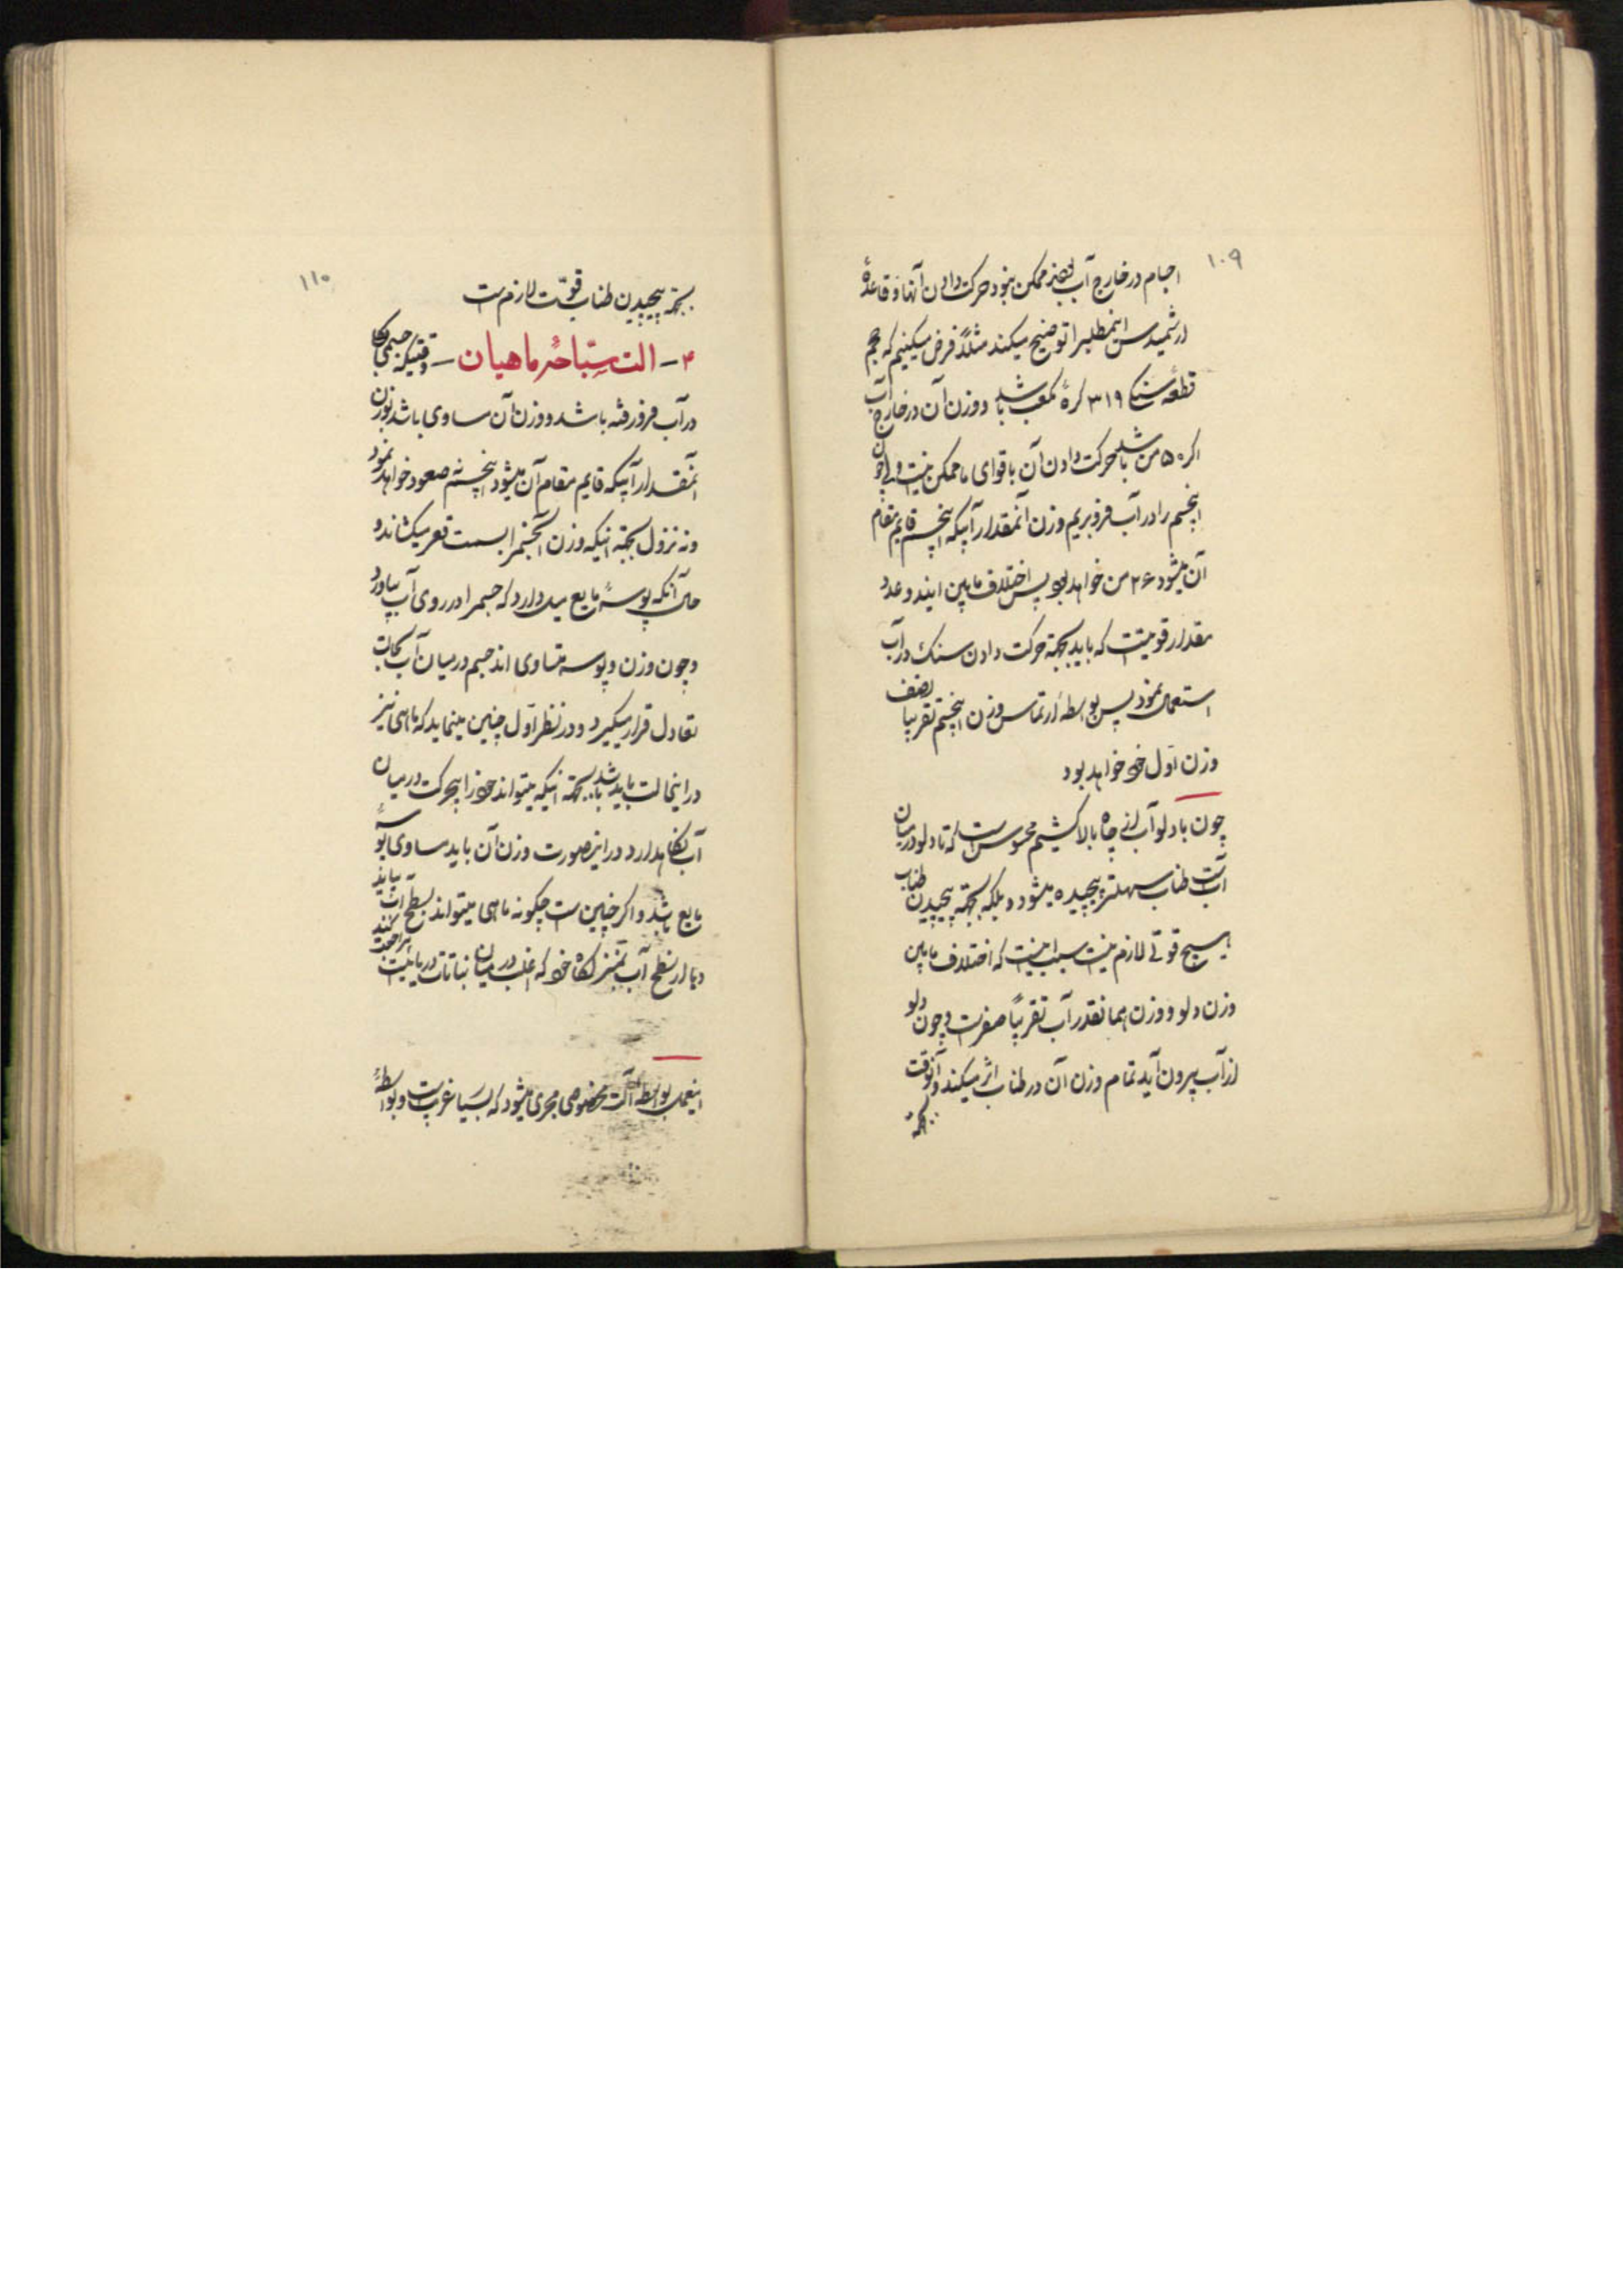 ۱۰۹
اجسام در خارج آب بعضی ممکن نبود حرکت دادن آنها و قاعدهٔ
ارشمیدس اینمطلبرا توضیح میکند مثلاً فرض میکنیم که حجم
قطعه سنگی ۳۱۹ گرهٔ مکعب باشد و وزن آن در خارج آب
اگر ۵۰ من باشد حرکت دادن آن با قوای ما ممکن نیست ولی چون
اینجسم را در آب فرو بریم وزن آنمقدار آبیکه اینجسم قایم مقام
آن میشود ۲۶ من خواهد بود پس اختلاف مابین ایندو عدد
مقدار قوتیست که باید بجهتهٔ حرکت دادن سنک در آب
استعمال نمود پس بواسطهٔ ارتماس وزن اینجسم تقریبا نصف
وزن اول خود خواهد بود
چون با دلو آب از چاه بالا کشیم محسوس است که تا دلو در میان
آبست طناب سهلتر پیچیده میشود و بلکه بجهتهٔ پیچیدن طناب
هیچ قوتی لازم نیست سبب اینست که اختلاف مابین
وزن دلو و وزن همانقدر آب تقریباً صفرست و چون دلو
از آب بیرون آید تمام وزن آن در طناب اثر میکند و آنوقت
بجهتهٔ
۱۱۰
بجهتهٔ پیچیدن طناب قوّت لازم است
۳ - الت سبّاحهٔ ماهیان - وقتیکه جسمی بکلی
در آب فرو رفته باشد و وزن آن مساوی باشد بوزن
آنمقدار آبیکه قایم مقام آن میشود اینجسم نه صعود خواهد نمود
و نه نزول بجهته اینکه وزن آنجسمرا بسمت قعر میکشاند و
حال آنکه پوسهٔ مایع میل دارد که جسمرا در روی آب بیاورد
و چون وزن و پوسه متساوی اند جسم در میان آب بحالت
تعادل قرار میگیرد و در نظر اول چنین مینماید که ماهی نیز
در اینحالت باید باشد بجهته اینکه میتواند خود را بیحرکت در میان
آب نگاهدارد و در اینصورت وزن آن باید مساوی پوسهٔ
مایع باشد و اگر چنین است چگونه ماهی میتواند بسطح آب بیاید
و یا از سطح آب بمنزلگاه خود که اغلب در میان نباتات دریائیست مراجعت کند
اینعمل بواسطه آلت مخصوصی مجری میشود که بسیار غریبست و بواسطهٔ